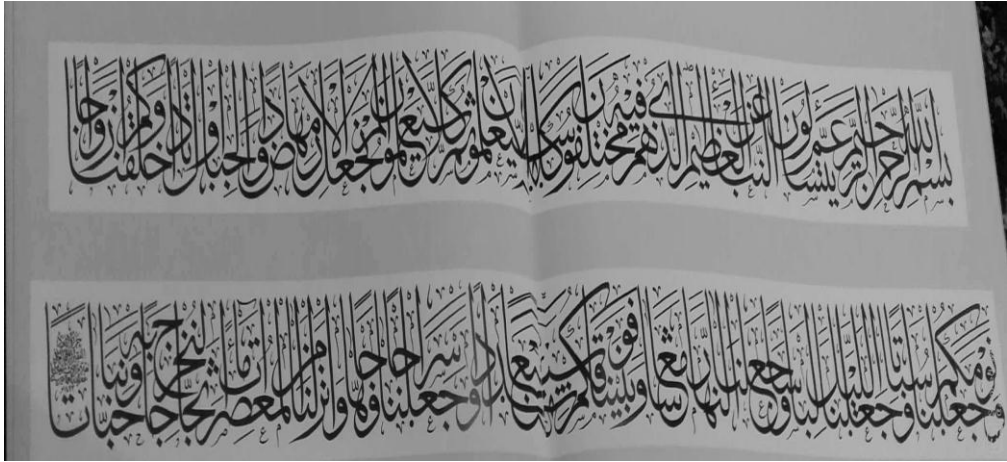 بسم الله الرحمن الرحيم عم يتساءلون عن النبإ العظيم الذي هم فيه مختلفون كلا سيعلمون ثم كلا سيعلمون ألم نجعل الأرض مهادا والجبال أوتادا وخلقناكم أزواجا
وجعلنا نومكم سباتا وجعلنا الليل لباسا وجعلنا النهار معاشا وبنينا فوقكم سبعا شدادا وجعلنا سراجا وهاجا وأنزلنا من المعصرات ماء ثجاجا لنخرج به حبا ونباتا